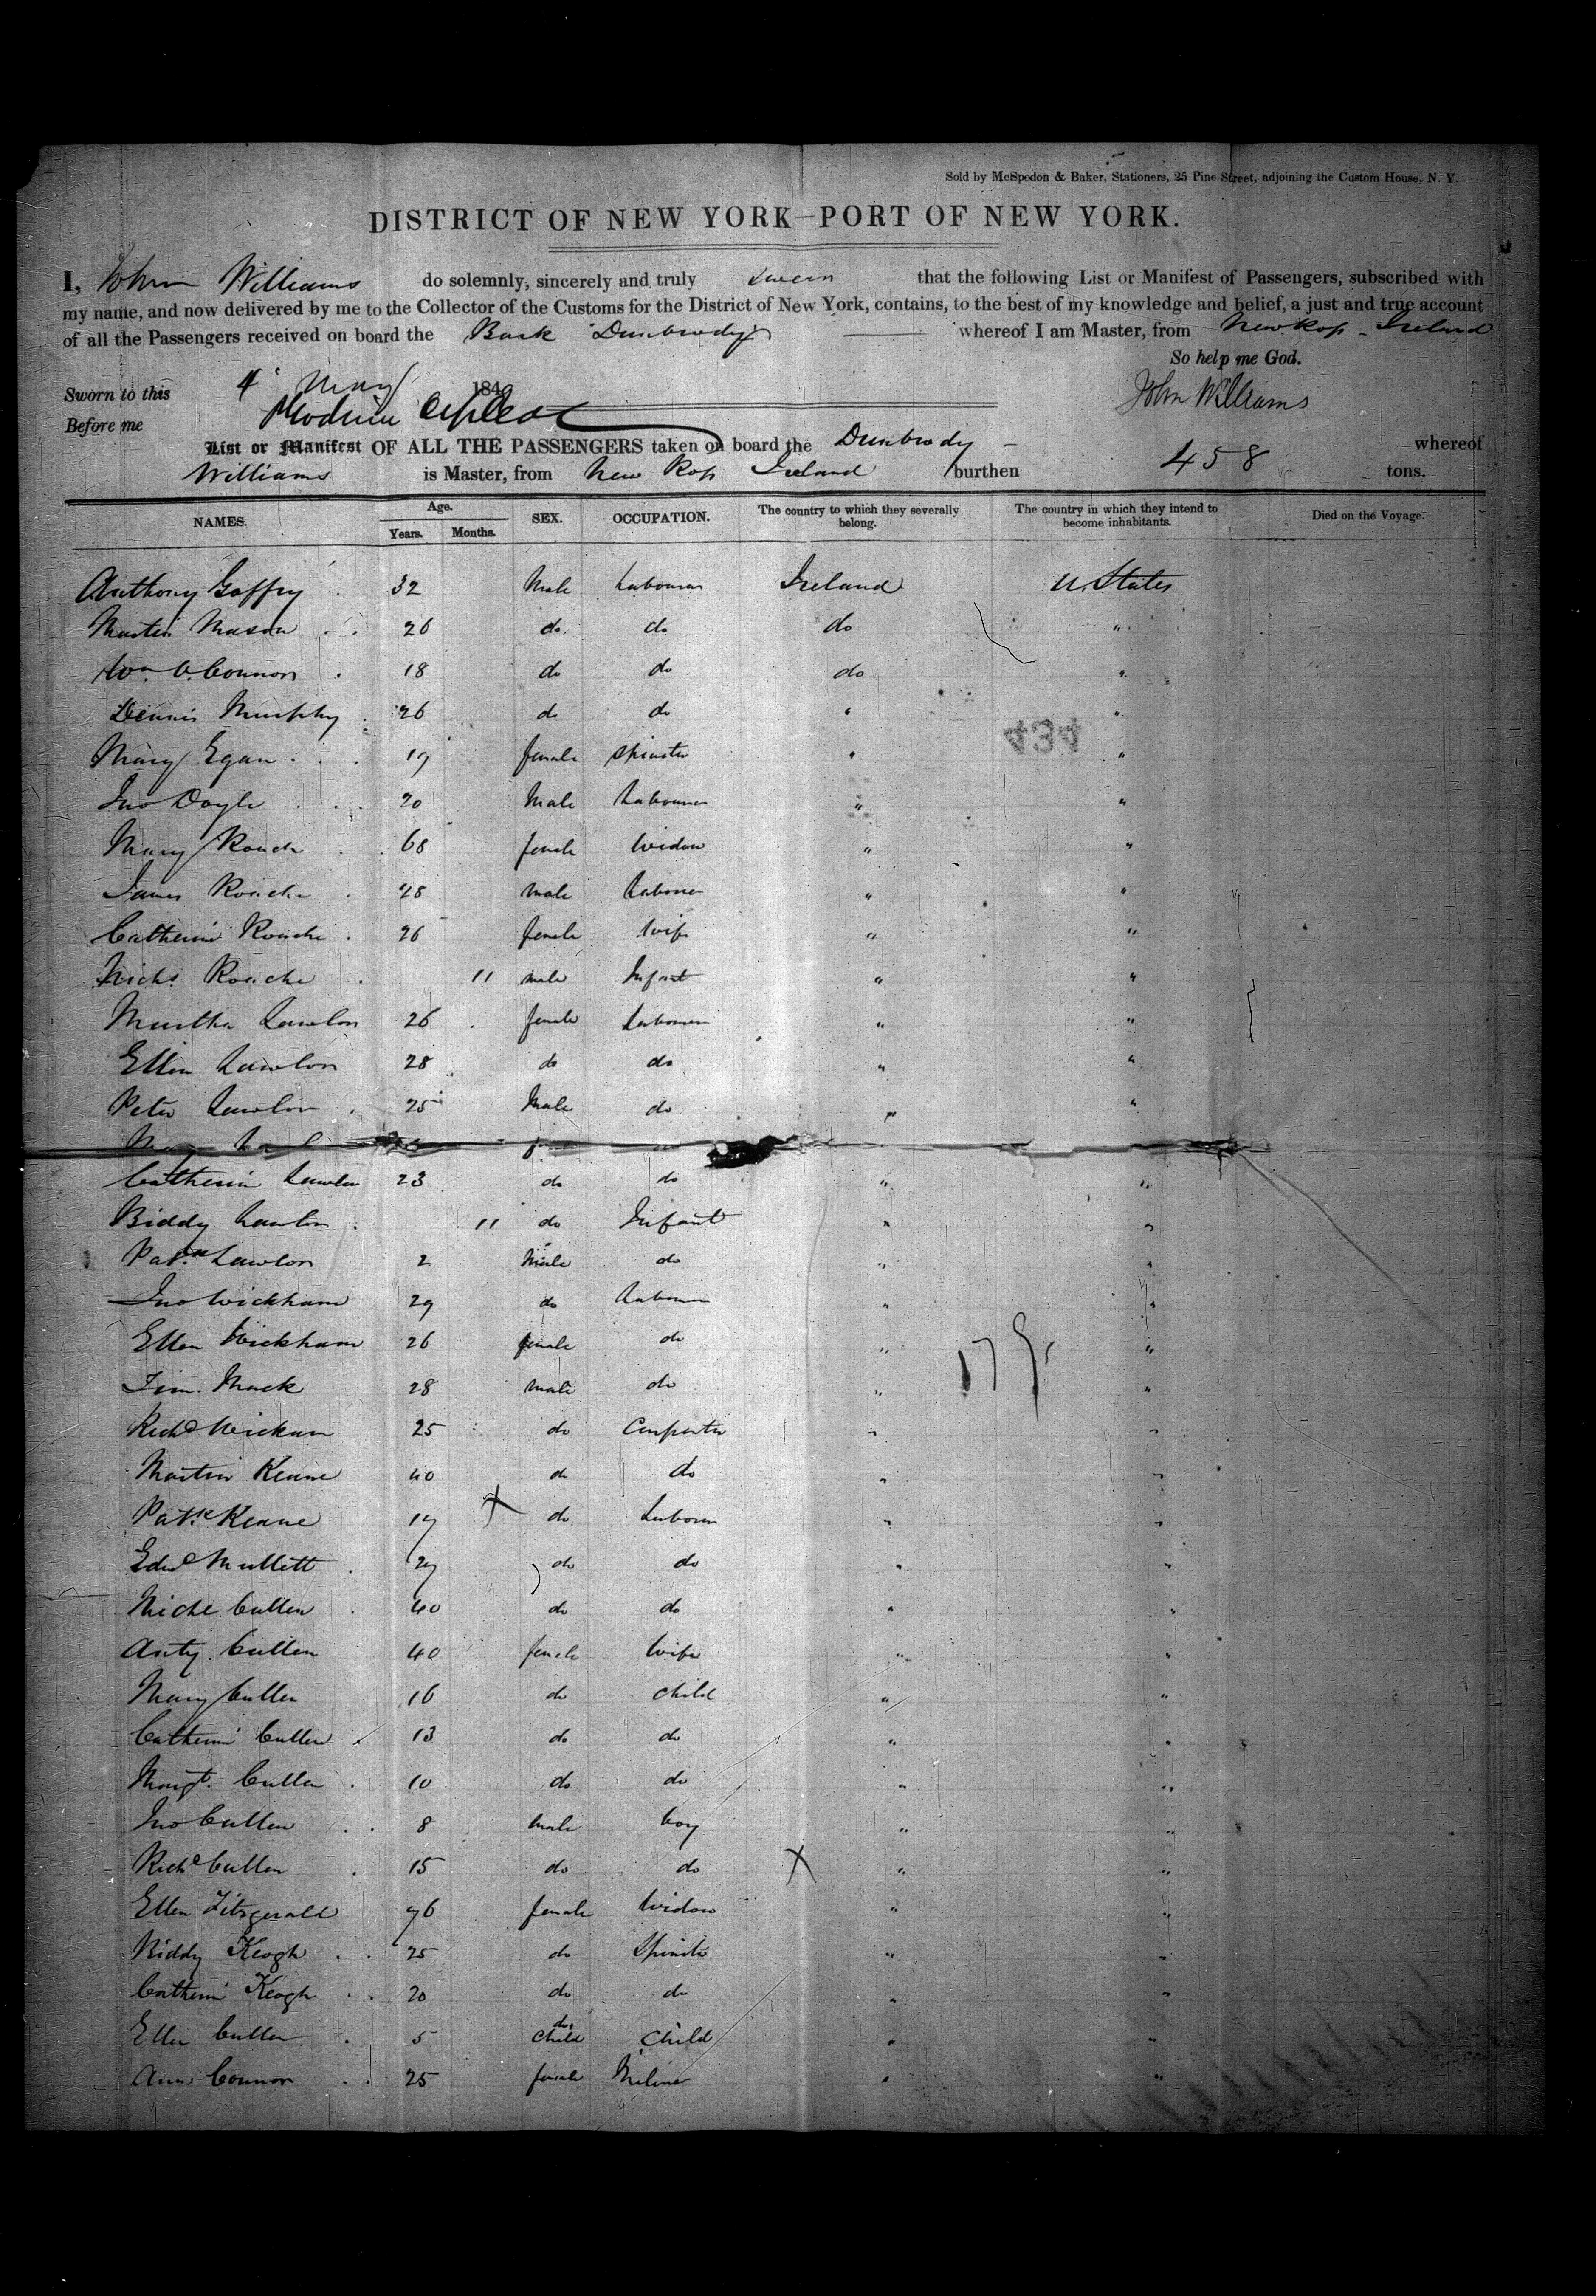 Sold by McSpedon & Baker, Stationers, 25 Pine Street, adjoining the Custom House, N. Y.
DISTRICT OF NEW YORK—PORT OF NEW YORK.
I, John Williams do solemnly, sincerely and truly swear that the following List or Manifest of Passengers, subscribed with
my name, and now delivered by me to the Collector of the Customs for the District of New York, contains, to the best of my knowledge and belief, a just and true account
of all the Passengers received on board the Bark Dunbrody whereof I am Master, from New Ross Ireland
So help me God.
Sworn to this 4 May 184 John Williams
Before me
List or Manifest OF ALL THE PASSENGERS taken on board the Dunbrody whereof
Williams is Master, from New Ross Ireland burthen 458 tons.
NAMES. Age. Years. Months. SEX. OCCUPATION. The country to which they severally belong. The country in which they intend to become inhabitants. Died on the Voyage.
Anthony Gaffry 32 Male Labourer Ireland U. States
Martin Mason 26 do do do "
Wm O. Connors 18 do do do "
Dennis Murphy 26 do do " "
434
Mary Egan 19 female Spinster " "
Jno Doyle 20 Male Labourer " "
Mary Roach 68 female Widow " "
James Roache 28 male Labourer " "
Catherine Roache 26 female Wife " "
Nichs Roache 11 male Infant " "
Martha Lawlor 26 female Labourer " "
Ellen Lawlor 28 do do " "
Peter Lawlor 25 Male do " "
Catherin Lawlor 23 do do " "
Biddy Lawlor 11 do Infant " "
Patk Lawlor 2 Male do " "
Jno Wickham 29 do Labourer " "
Ellen Wickham 26 female do " "
179
Tim. Mack 28 male do " "
Richd Wickam 25 do Carpenter " "
Martin Keane 40 do do " "
Patk Keane 19 X do Labourer " "
Edwd Mullett 29 do do " "
Michl Cullen 40 do do " "
Anty Cullen 40 female Wife " "
Mary Cullen 16 do child " "
Catherine Cullen 13 do do " "
Margt. Cullen 10 do do " "
Jno Cullen 8 male boy " "
Richd Cullen 15 do do X " "
Ellen Fitzgerald 76 female Widow " "
Biddy Keogh 25 do Spinster " "
Catherine Keogh 20 do do " "
Ellen Cullen 5 do child Child " "
Ann Connor 25 female Miliner " "